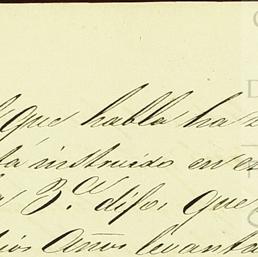 que habla ha
tá instruido en es
a 3.ª dijo, que
ios años levanta